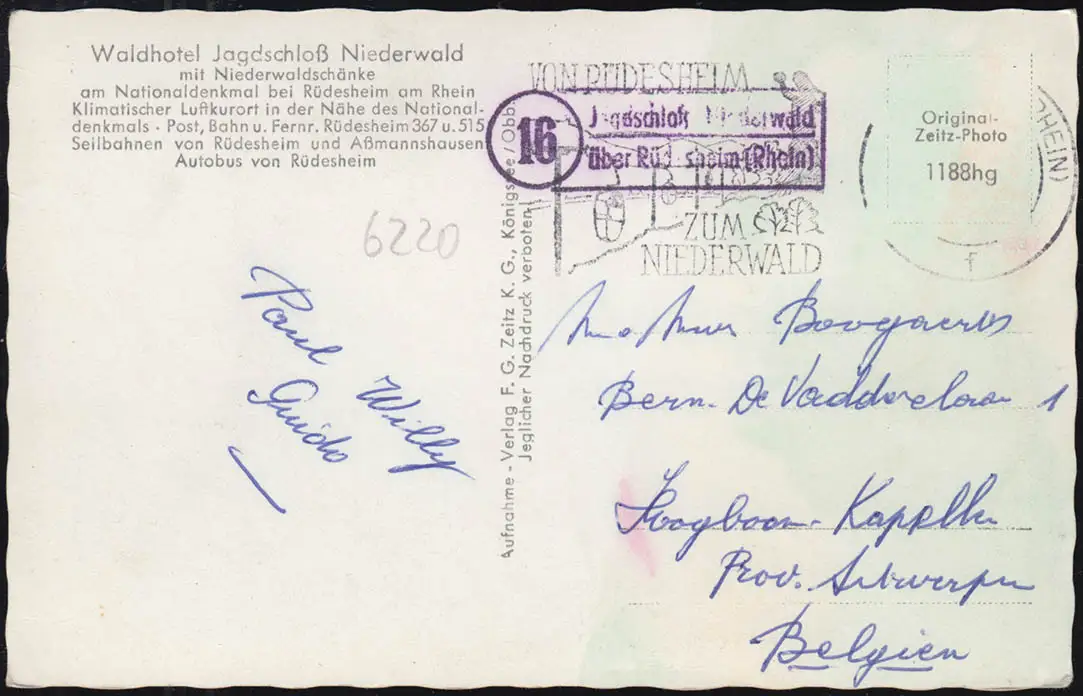 Waldhotel Jagdschloß Niederwald
mit Niederwaldschänke
am Nationaldenkmal bei Rüdesheim am Rhein
Klimatischer Luftkurort in der Nähe des National-
denkmals · Post, Bahn u. Fernr. Rüdesheim 367 u. 515
Seilbahnen von Rüdesheim und Aßmannshausen
Autobus von Rüdesheim
6220
Paul Willy
Guido
Aufnahme - Verlag F. G. Zeitz K. G., Königssee / Obb.
Jeglicher Nachdruck verboten!
VON RÜDESHEIM
ZUM
NIEDERWALD
16
Jagdschloß Niederwald
über Rüdesheim (Rhein)
RHEIN)
f
Original-
Zeitz-Photo
1188hg
Boogaerts
Bern. De 1
Hoogboom - Kapellen
Prov. Antwerpen
Belgien